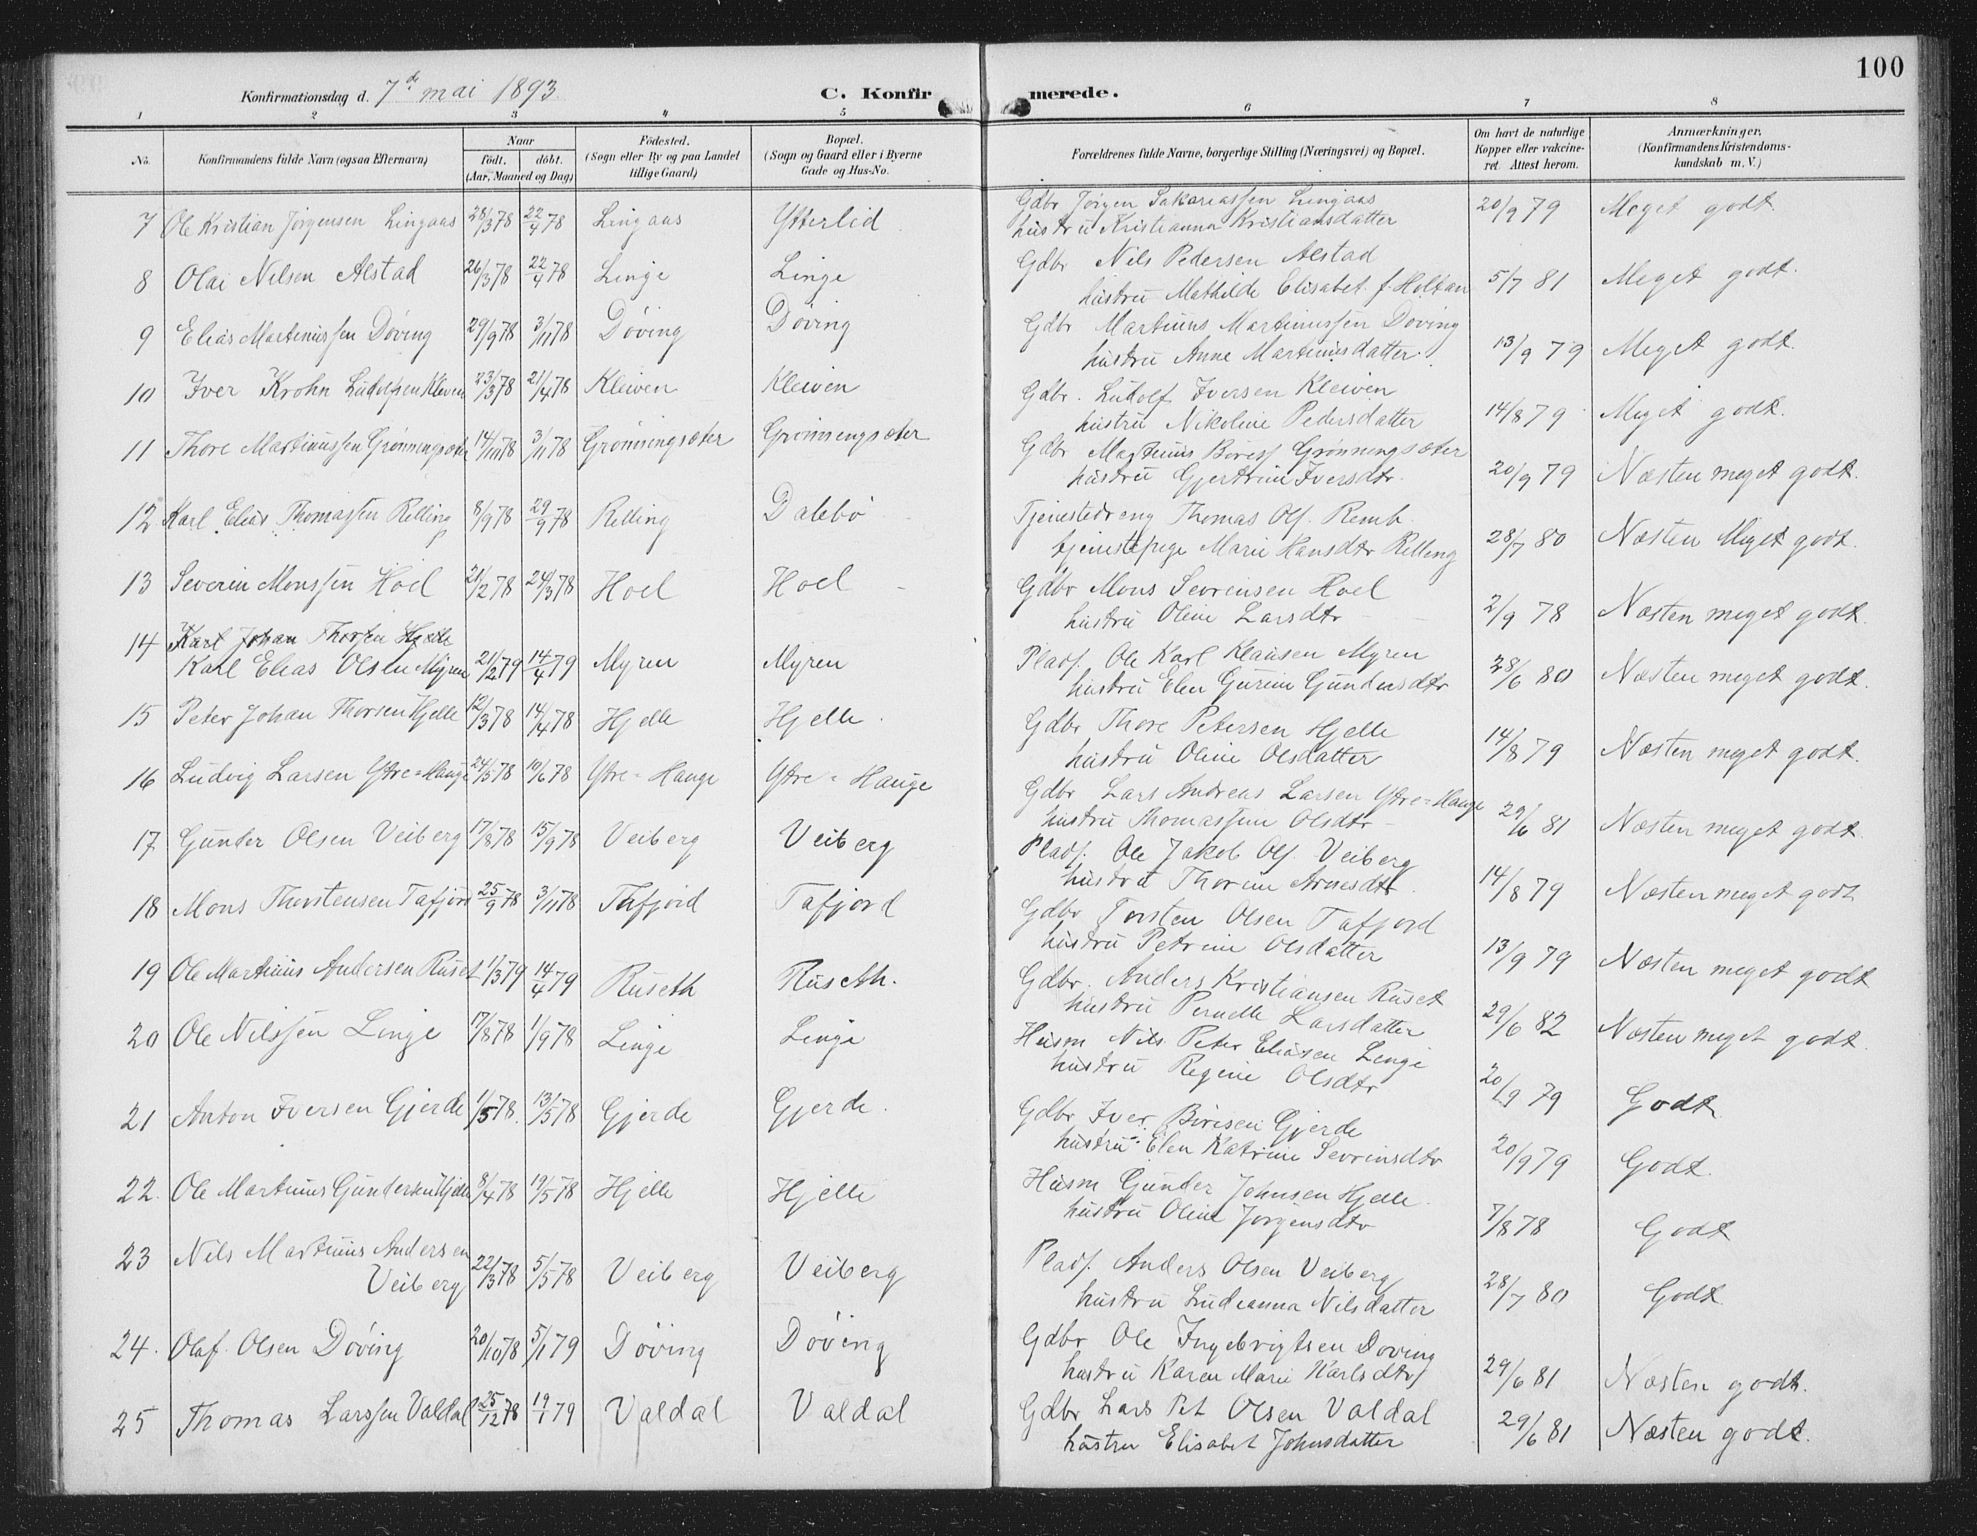 100
Konfirmationsdag d. 7de mai 1893. C. Konfirmerede.
1 2 3 4 5 6 7 8
No. Konfirmandens fulde Navn (ogsaa Efternavn) Naar født. døbt. (Aar, Maaned og Dag) Fødested. (Sogn eller By og paa Landet tillige Gaard) Bopæl. (Sogn og Gaard eller i Byerne Gade og Hus-No. Forældrenes fulde Navne, borgerlige Stilling (Næringsvei) og Bopæl. Om havt de naturlige Kopper eller vakcineret. Attest herom. Anmærkninger. (Konfirmandens Kristendomskundskab m. V.)
7 Ole Kristian Jørgensen Lingaas 28/3 78 22/4 78 Lingaas Ytterlid Gdbr Jørgen Sakariassen Lingaas 20/9 79 Meget godt.
hustru Kristianna Kristiansdatter
8 Olai Nilsen Alstad 26/3 78 22/4 78 Linge Linge Gdbr Nils Pedersen Alstad 5/7 81 Meget godt.
hustru Mathilde Elisabet f. Holtan
9 Elias Martinussen Døving 29/9 78 3/11 78 Døving Døving Gdbr Martinus Martinussen Døving 13/9 79 Meget godt.
hustru Anne Martinusdatter.
10 Iver Krohn Ludolfsen Kleiven 23/3 78 21/4 78 Kleiven Kleiven Gdbr. Ludolf Iversen Kleiven 14/8 79 Meget godt.
hustru Nikoline Pedersdatter
11 Thore Martinussen Grønningsæter 14/10 78 3/11 78 Grønningsæter Grønningsæter Gdbr Martinus Børess Grønningsæter 20/9 79 Næsten meget godt.
hustru Gjertrine Iversdtr.
12 Karl Elias Thomassen Relling 8/9 78 29/9 78 Relling Dalebø Tjenestedreng Thomas Ols. Remb 28/7 80 Næsten Meget godt.
tjenestepige Marie Hansdtr Relling
13 Severin Monssen Hoel 21/2 78 24/3 78 Hoel Hoel Gdbr Mons Sevrensen Hoel 2/9 78 Næsten meget godt.
hustru Oline Larsdtr
14 Karl Johan Thorsen Hjelle
Karl Elias Olsen Myren 21/2 79 14/4 79 Myren Myren Pladss. Ole Karl Klausen Myren 28/6 80 Næsten meget godt.
hustru Elen Gurine Gundersdtr
15 Peter Johan Thorsen Hjelle 12/3 78 14/4 78 Hjelle Hjelle. Gdbr Thore Petersen Hjelle 14/8 79 Næsten meget godt.
hustru Oline Olsdatter
16 Ludvig Larsen Ytre=Hauge 24/5 78 10/6 78 Ytre=Hauge Ytre=Hauge Gdbr Lars Andreas Larsen Ytre=Hauge 29/6 81 Næsten meget godt.
hustru Thomassine Olsdtr
17 Gunder Olsen Veiberg 17/8 78 15/9 78 Veiberg Veiberg Pladss. Ole Jakob Ols. Veiberg 14/8 79 Næsten meget godt
hustru Thorine Arnesdtr.
18 Mons Thorstensen Tafjord 25/9 78 3/11 78 Tafjord Tafjord Gdbr Torsten Olsen Tafjord 13/9 79 Næsten meget godt
hustru Petrine Olsdatter
19 Ole Martinus Andersen Ruset 11/3 79 14/4 79 Ruseth Ruseth. Gdbr. Anders Kristiansen Ruset 29/6 82 Næsten meget godt.
hustru Pernelle Larsdatter
20 Ole Nilssen Linge 17/8 78 1/9 78 Linge Linge Husm Nils Peter Eliasen Linge 20/9 79 Godt
hustru Regine Olsdtr
21 Anton Iversen Gjerde 1/5 78. 13/5 78 Gjerde Gjerde. Gdbr Iver Børesen Gjerde 20/9 79 Godt.
hustru Elen Katrine Sevrinsdtr
22. Ole Martinus Gundersen Hjelle 8/4 78 19/5 78 Hjelle Hjelle Husm Gunder Johnsen Hjelle. 7/8 78 Godt
hustru Oline Jørgensdtr
23 Nils Martinus Andersen
Veiberg 22/3 78 5/5 78 Veiberg Veiberg Pladss. Anders Olsen Veiberg 28/7 80 Godt
hustru Ludeanna Nilsdatter
24. Olaf Olsen Døving 20/10 78 5/1 79 Døving Døving Gdbr Ole Ingebrigtsen Døving 29/6 81 Næsten godt.
hustru Karen Marie Karlsdtr
25 Thomas Larssen Valdal 25/12 78 19/1 79 Valdal Valdal Gdbr Lars Pet Olsen Valdal 29/6 81 Næsten godt.
hustru Elisabet Johnsdatter